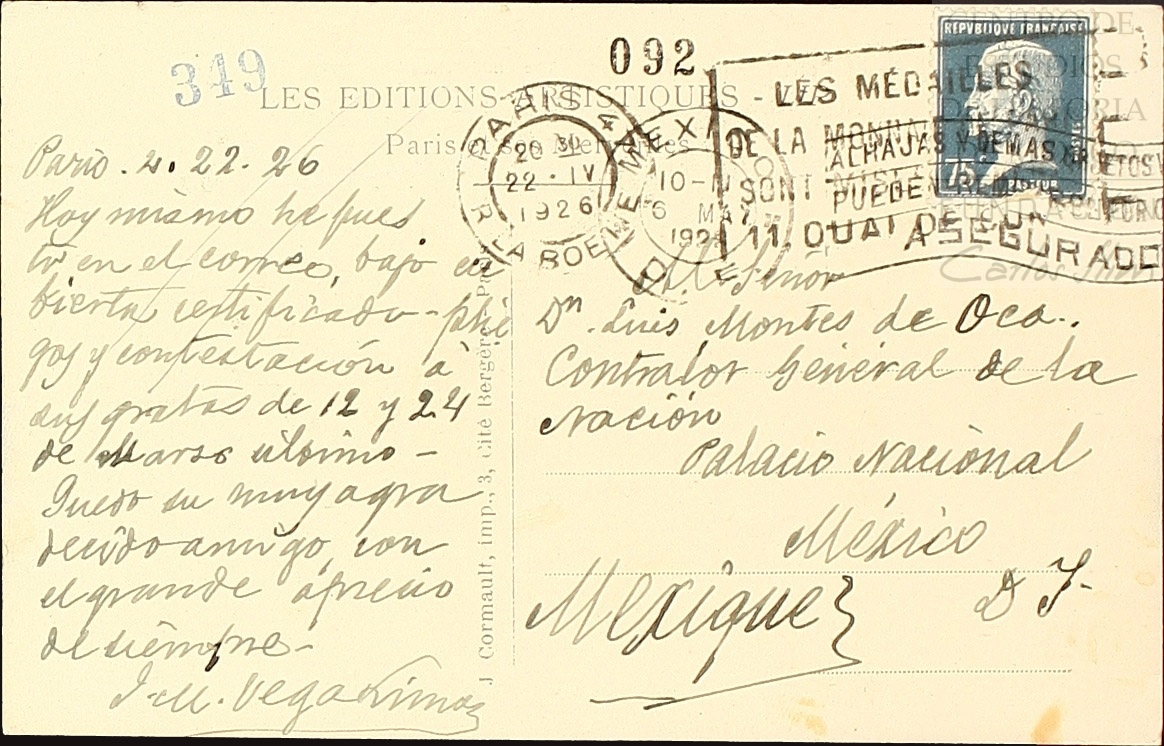 349
092
LES EDITIONS ARTISTIQUES
Paris
REPVBLIQUE FRANÇAISE
75
CENTRO DE
ESTUDIOS
HISTORIA
Carlos
20 30
22 · IV
1926
LA BOETIE
MEXICO
10-
6 MAY
192
LES MÉDAILLES
DE LA MONNAIE
SONT
11, QUAI DE CONTI
ALHAJAS Y DEMAS OBJETOS
PUEDEN REMITIRSE
ASEGURADO
J. Cormault, imp., 3, Cité Bergère - Paris
Paris . 4. 22. 26
Hoy mismo he pues
to en el correo, bajo cu
bierta certificada - plie
gos y contestación á
sus gratas de 12 y 24
de Marzo último -
Quedo su muy agra
decido amigo, con
el grande aprecio
de siempre -
J. M. Vega Limón
Al Señor
Dn. Luis Montes de Oca.
Contralor General de la
Nación
Palacio Nacional
México
D F.
Mexique